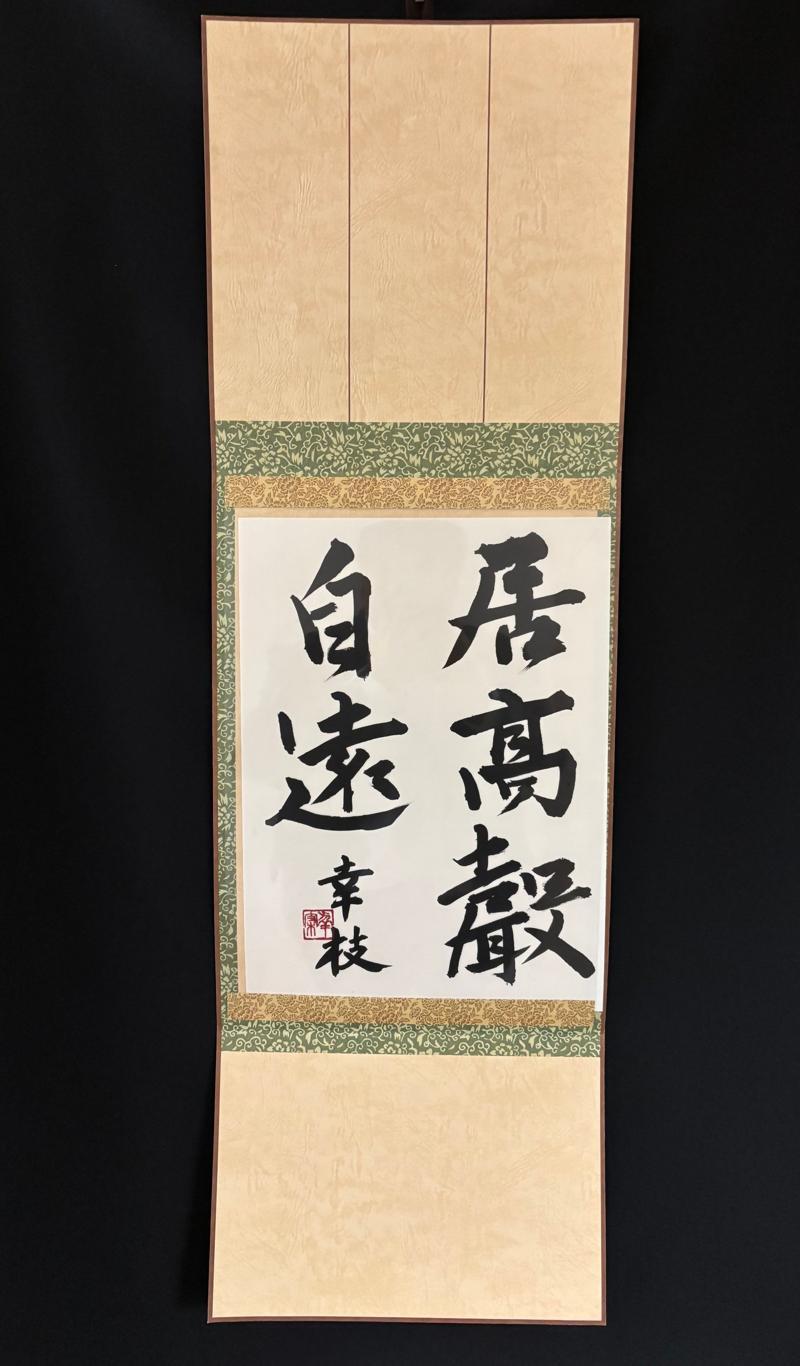 居高聲
自遠
幸枝